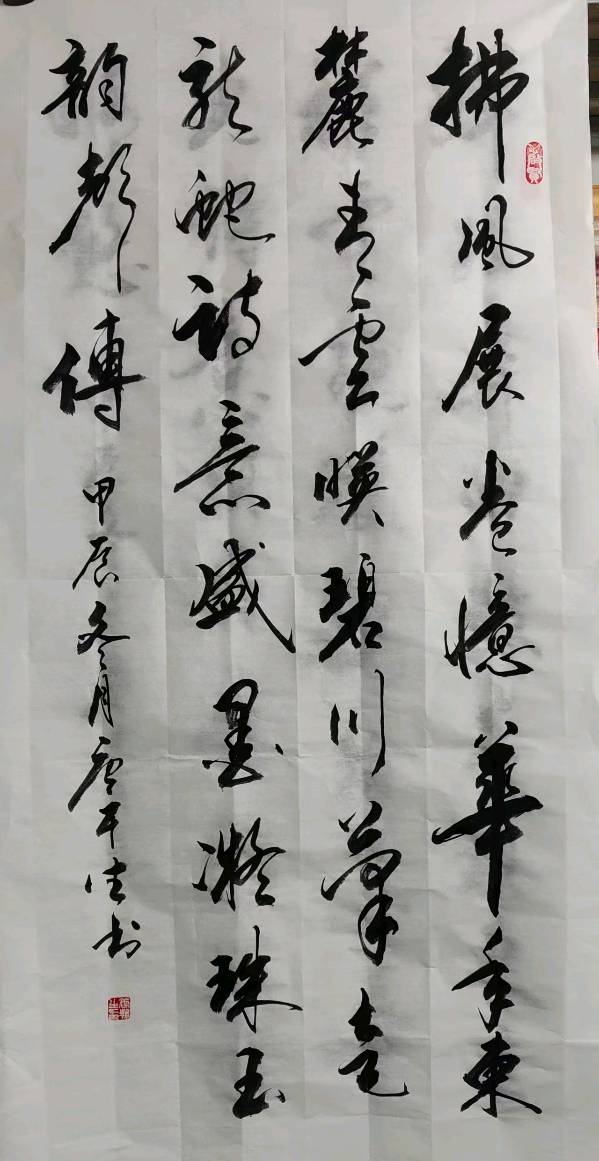 拂風展卷憶華年東
麓青雲暎碧川筆走
龍蛇詩意盛墨凝珠玉
韵傳
甲辰冬月書